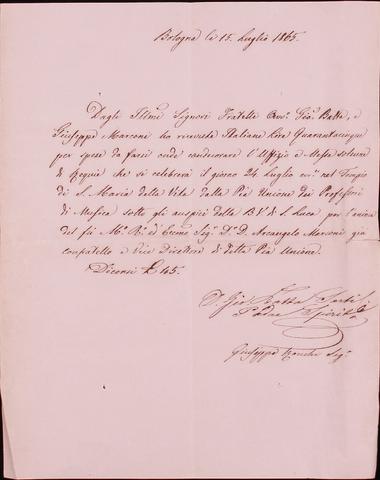 Bologna li 15. Luglio 1865.
Dagli Illmi Signori Fratelli Cav. Gio. Batta, e
Giuseppe Marconi ho ricevute Italiane Lire Quarantacinque
per spese da farsi onde condecorare l'Uffizio e Messa solenne
di Requie che si celebrerà il giorno 24 Luglio corr. nel Tempio
di S. Maria della Vita dalla Pia Unione dei Professori
di Musica sotto gli auspici della B.V. di S. Luca per l'anima
del fu M. R. ed Eccmo Sig. D. D. Arcangelo Marconi già
confratello e Vice Direttore di detta Pia Unione.
Dicensi £ 45.
D. Gio. Batta Sarti
Padre Spirit.
Giuseppe Seg.